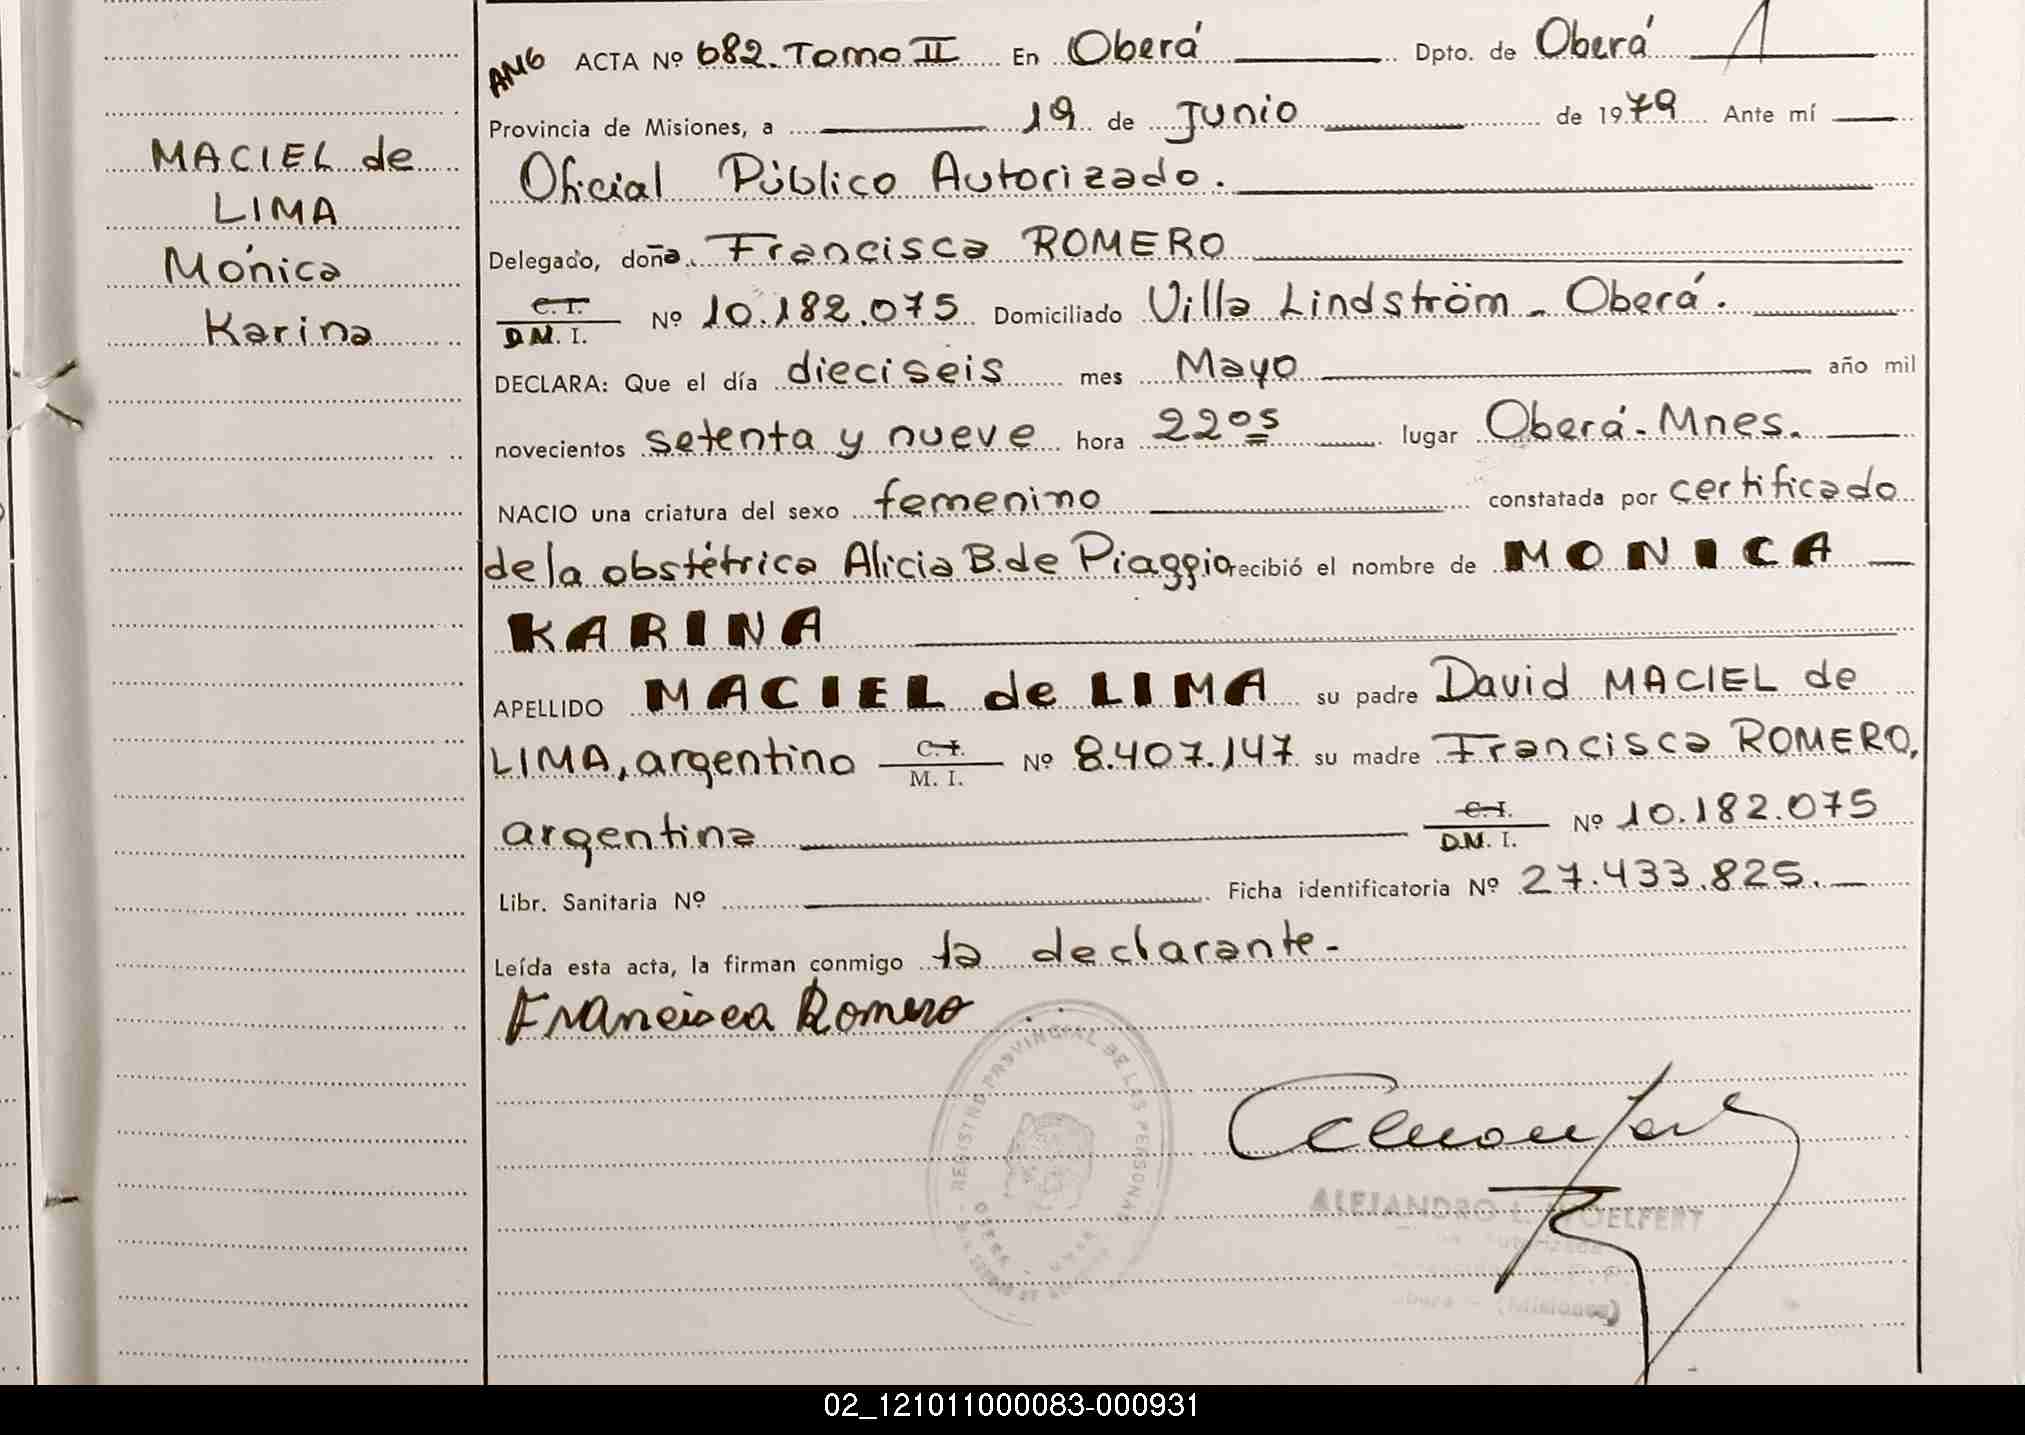 MACIEL de
LIMA
Mónica
Karina
ANG ACTA Nº 682. Tomo II En Oberá Dpto. de Oberá
Provincia de Misiones, a 19 de Junio de 1979 Ante mí
Oficial Público Autorizado.
Delegado, doña Francisca ROMERO
C. I.
D.M. I. Nº 10.182.075 Domiciliado Villa Lindström - Oberá.
DECLARA: Que el día dieciseis mes Mayo año mil
novecientos setenta y nueve hora 22 os lugar Oberá - Mnes.
NACIO una criatura del sexo femenino constatada por certificado
de la obstétrica Alicia B. de Piaggio recibió el nombre de MONICA
KARINA
APELLIDO MACIEL de LIMA su padre David MACIEL de
LIMA, argentino C. I. M. I. Nº 8.407.147 su madre Francisca ROMERO,
argentina C. I. D.M. I. Nº 10.182.075
Libr. Sanitaria Nº Ficha identificatoria Nº 27.433.825.
Leída esta acta, la firman conmigo la declarante.-
Francisca Romero
REGISTRO PROVINCIAL DE LAS PERSONAS
ALEJANDRO L.
02_121011000083-000931